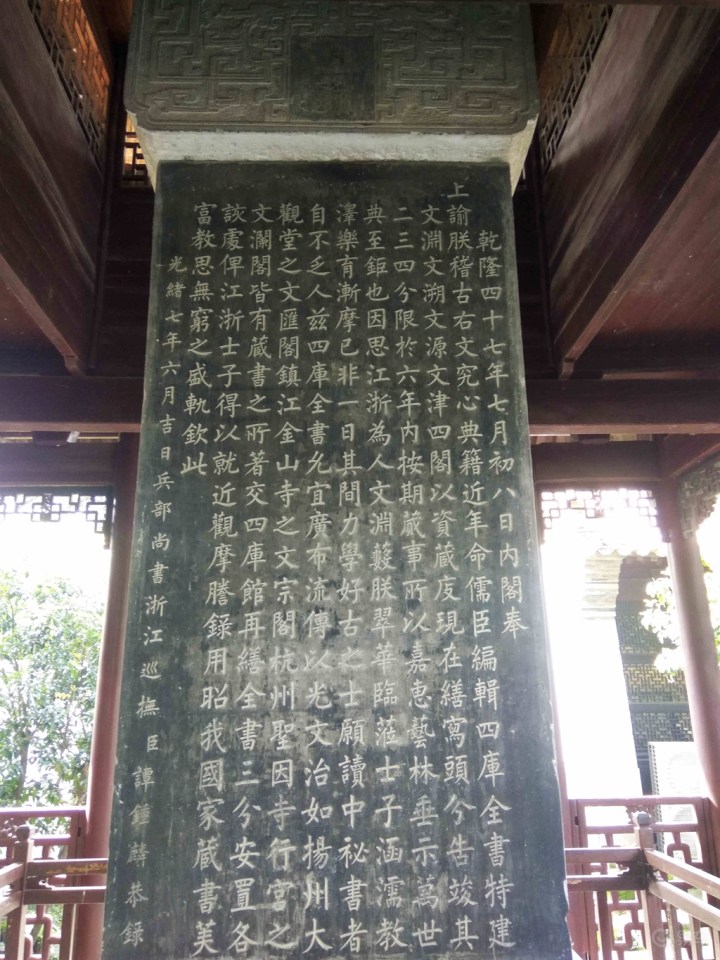 乾隆四十七年七月初八日內閣奉
上諭朕稽古右文究心典籍近年命儒臣編輯四庫全書特建
文淵文溯文源文津四閣以資藏庋現在繕寫頭分告竣其
二三四分限於六年內按期蕆事所以嘉惠藝林垂示萬世
典至鉅也因思江浙為人文淵藪朕翠華臨蒞士子涵濡教
澤樂育漸摩已非一日其間力學好古之士願讀中祕書者
自不乏人茲四庫全書允宜廣布流傳以光文治如揚州大
觀堂之文匯閣鎮江金山寺之文宗閣杭州聖因寺行宮之
文瀾閣皆有藏書之所著交四庫館再繕全書三分安置各
該處俾江浙士子得以就近觀摩謄錄用昭我國家藏書美
富教思無窮之盛軌欽此
光緒七年六月吉日兵部尚書浙江巡撫臣譚鍾麟恭錄